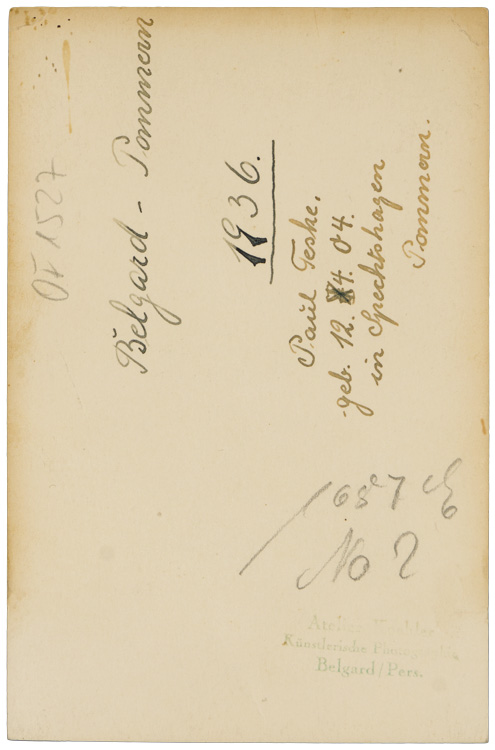 Belgard - Pommern
1936.
Paul Teske.
geb. 12. 4. 04.
in Spechtshagen
Pommern.
1657
No 2
Künstlerische Photographie
Belgard/Pers.